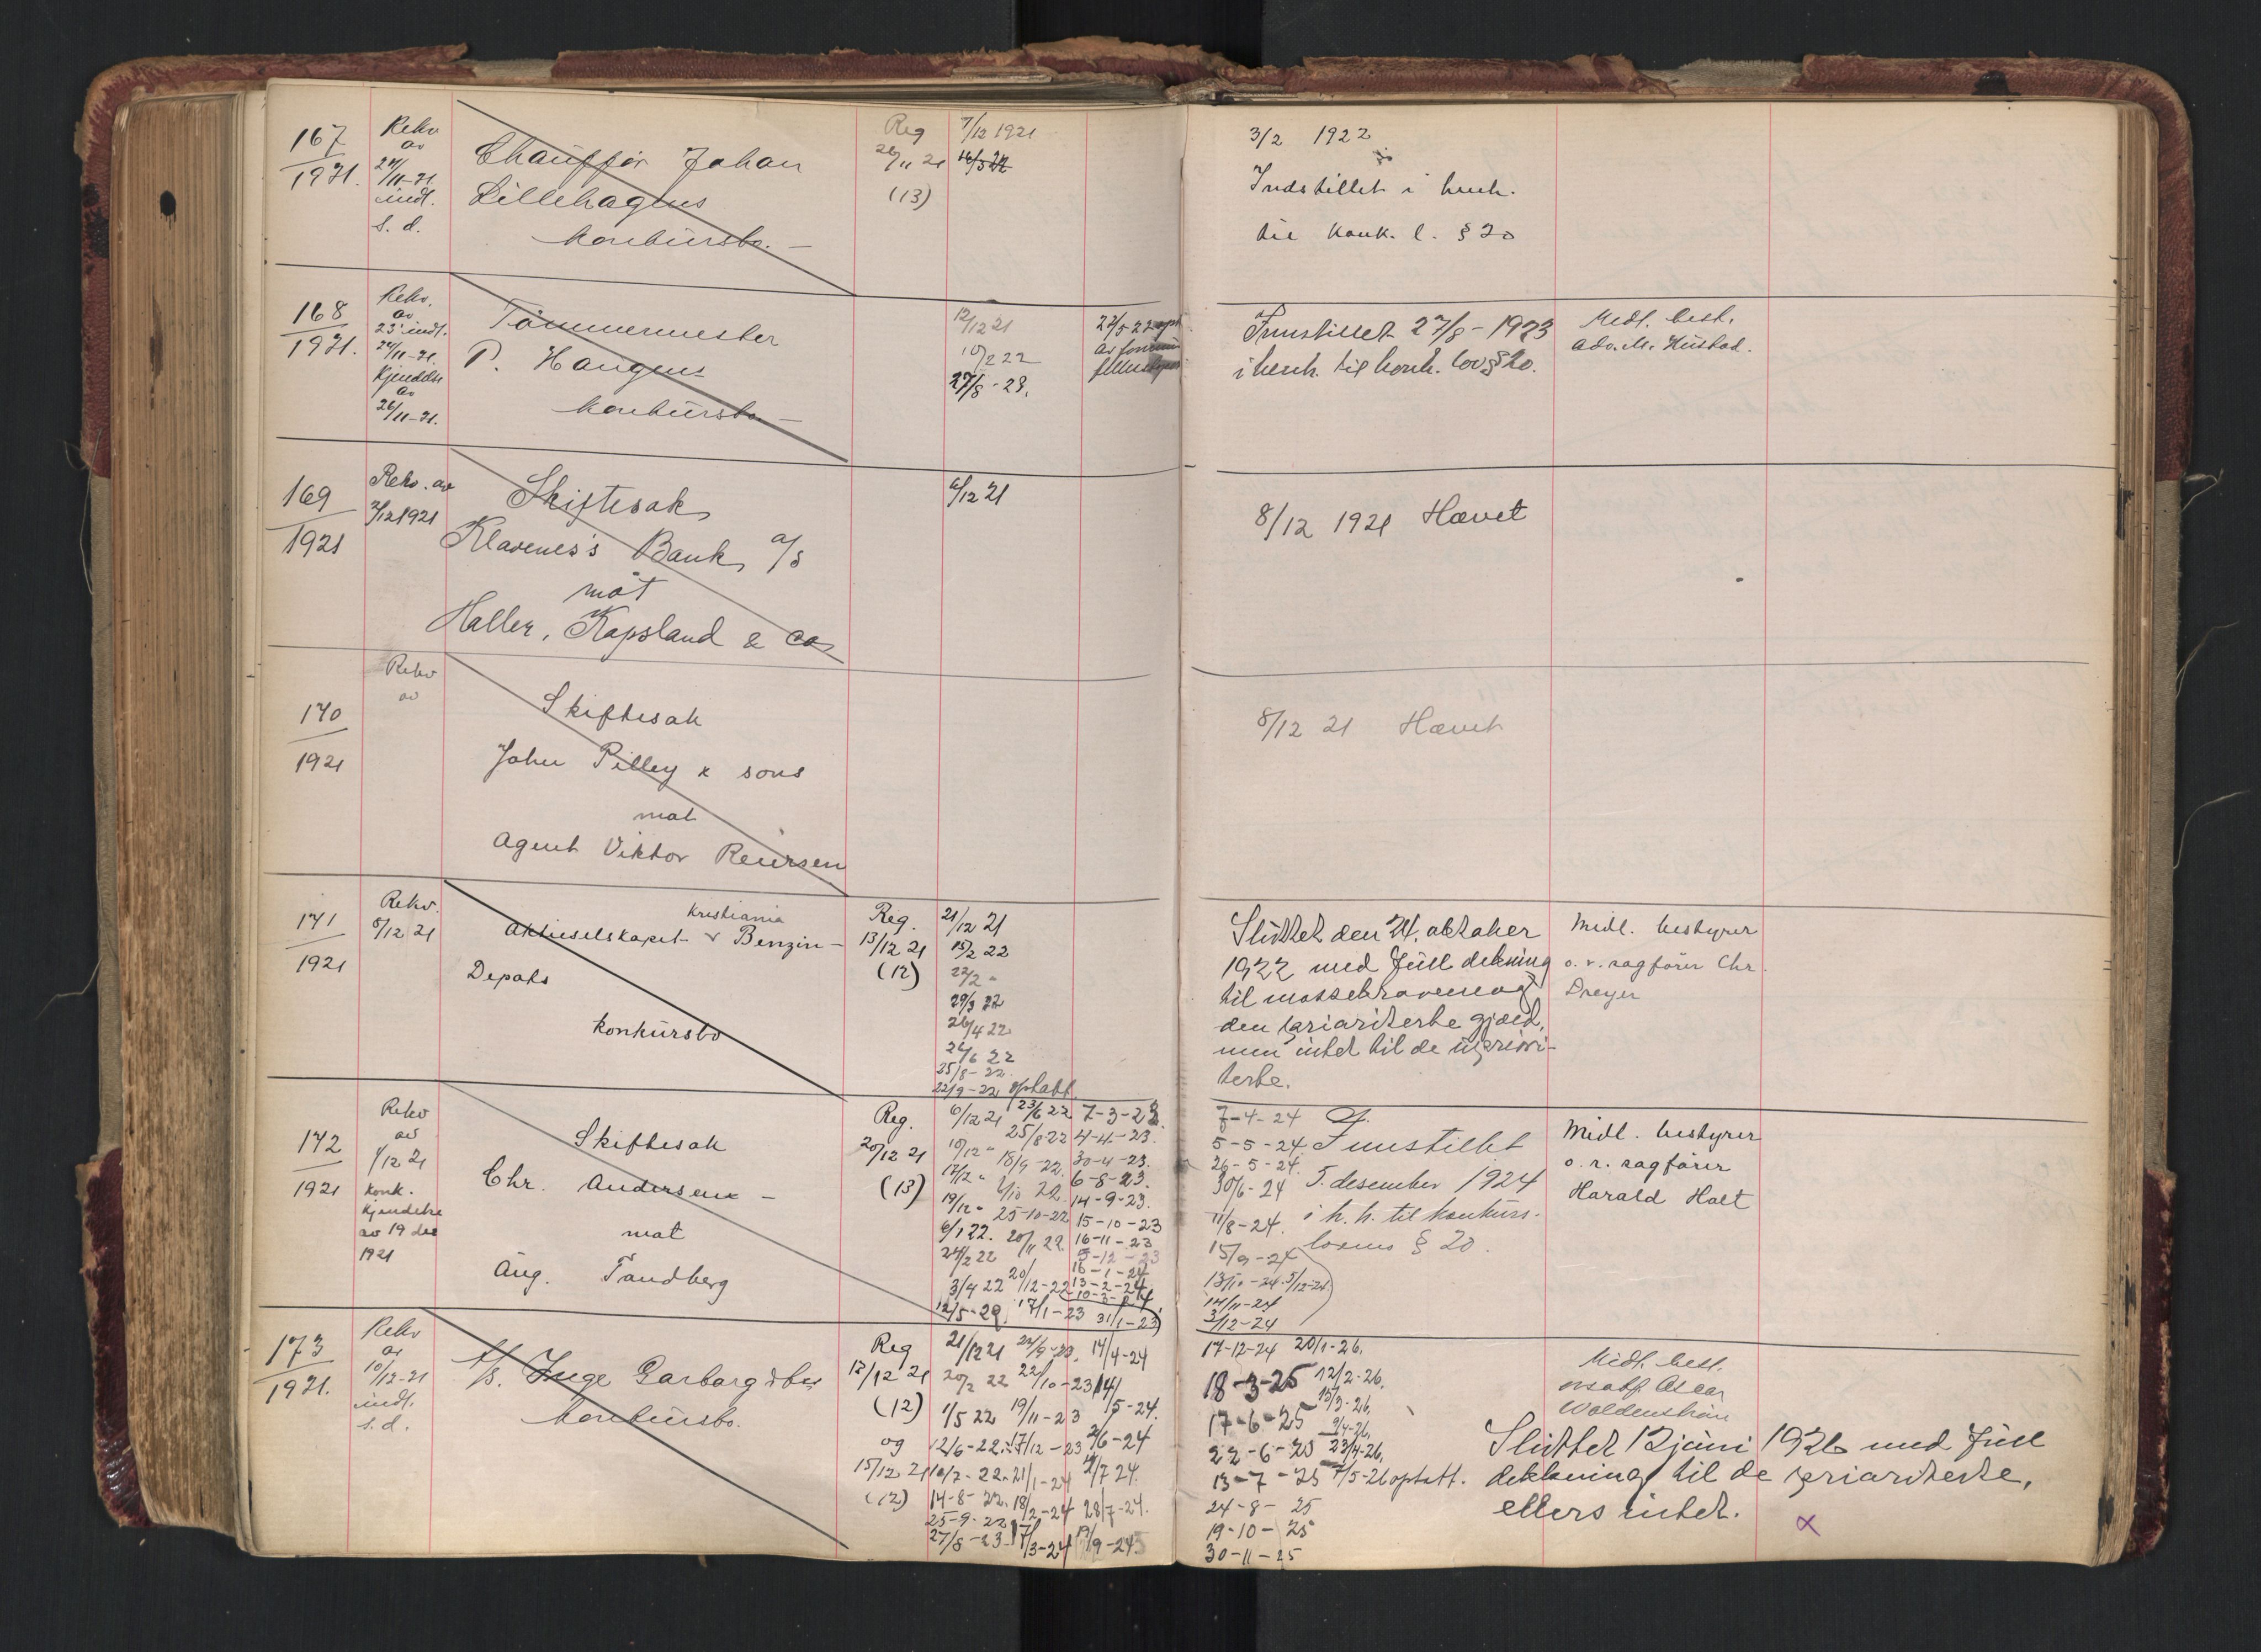 167
1921.
Rekv
av
24/11-21.
indl.
s. d.
Chauffør Johan
Lillehagens
konkursbo. —
Reg
26/11 21
(13)
7/12 1921
16/3 22
3/2 1922
Indstillet i henh.
til konk. l. § 20
168
1921.
Rekv.
av
23' indl.
24/11-21.
Kjendelse
av
26/11-21.
Tømmermester
P. Haugens
konkursbo —
12/12 21
10/2 22
27/8-23.
22/5 22 opt
av
Innstillet 27/8-1923
i henh. til konk. lov § 20.
Midl. best.
adv. M. Hustad.
169
1921
Rekv. av
2/12 1921
Skiftesak
Klavenes's Bank A/S
mot
Haller, Kapsland & Co
6/12 21
8/12 1921 Hævet
170
1921
Rekv
av
Skiftesak
John Pilley & sons
mot
Agent Viktor Reiersen
8/12 21 Hævet
171
1921
Rekv.
8/12 21
Kristiania
Aktieselskapet v Benzin-
Depots
konkursbo
Reg.
13/12 21
(12)
21/12 21
15/2 22
22/2 "
29/3 22
26/4 22
24/6 22
25/8-22.
22/9-22 optatt
Sluttet den 24. oktober
1922 med full dekning
til massekravene og
den prioriterte gjæld,
men intet til de uppriori-
terte.
Midl. bestyrer
o. r. sagfører Chr.
Dreyer
172
1921
Rekv
av
1/12 21
konk.
kjendelse
av 19 des
1921
Skiftesak
Chr. Andersen —
mot
Aug. Tandberg
Reg.
20/12 21
(13)
6/12 21
10/12 "
17/12 "
19/12 "
6/1 22.
24/2 22
3/4 22
12/5-22.
23/6 22
25/8 22
18/9-22.
2/10 22.
25-10-22
20/11 22.
20/12-22
17/1-23
31/1-23
7-3-23.
4-4-23.
30-4-23.
6-8-23.
14-9-23.
15-10-23
16-11-23
5-12-23
16-1-24
13-2-24
10-3-24.
7-4-24
5-5-24.
26-5-24.
30/6-24
11/8-24.
15/9-24
13/10-24. 5/12-24.
14/11-24
3/12-24
Innstillet
5. desember 1924
i h. h. til konkurs-
lovens § 20.
Midl. bestyrer
o. r. sagfører
Harald Holt
173
1921.
Rekv
av
10/12-21
indl.
s. d.
A/S. Inge Garborg & Co's
konkursbo.
Reg
12/12 21
(12)
og
15/12 21
(12)
21/12 21
20/2 22
1/5 22
12/6-22.
10/7-22.
14-8-22.
25-9-22
27/8-23
24/9-23.
22/10-23
19/11-23
17/12-23
21/1-24
18/2-24
17/3-24
14/4-24
14/5-24.
2/6-24
4/7 24.
28/7-24.
19/9-24
17-12-24
18-3-25
17-6-25
22-6-25
13-7-25
24-8-25
19-10-25
30-11-25
20/1-26.
12/2-26.
15/3-26.
9/4-26.
23/4-26.
7/5-26 optatt.
Midl. best.
orsabf. Oscar
Woldenstrøm
Sluttet 12 juni 1926 med full
dekkning til de prioriterte,
ellers intet.
x